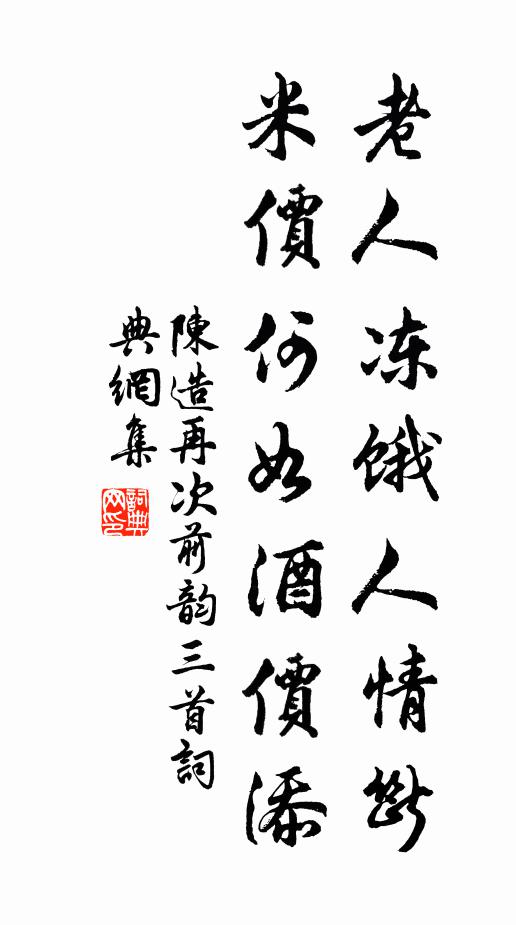 老人冻饿人情断
米價何如酒價添
陳造再次前韵三首詞
典網集
詞典网印